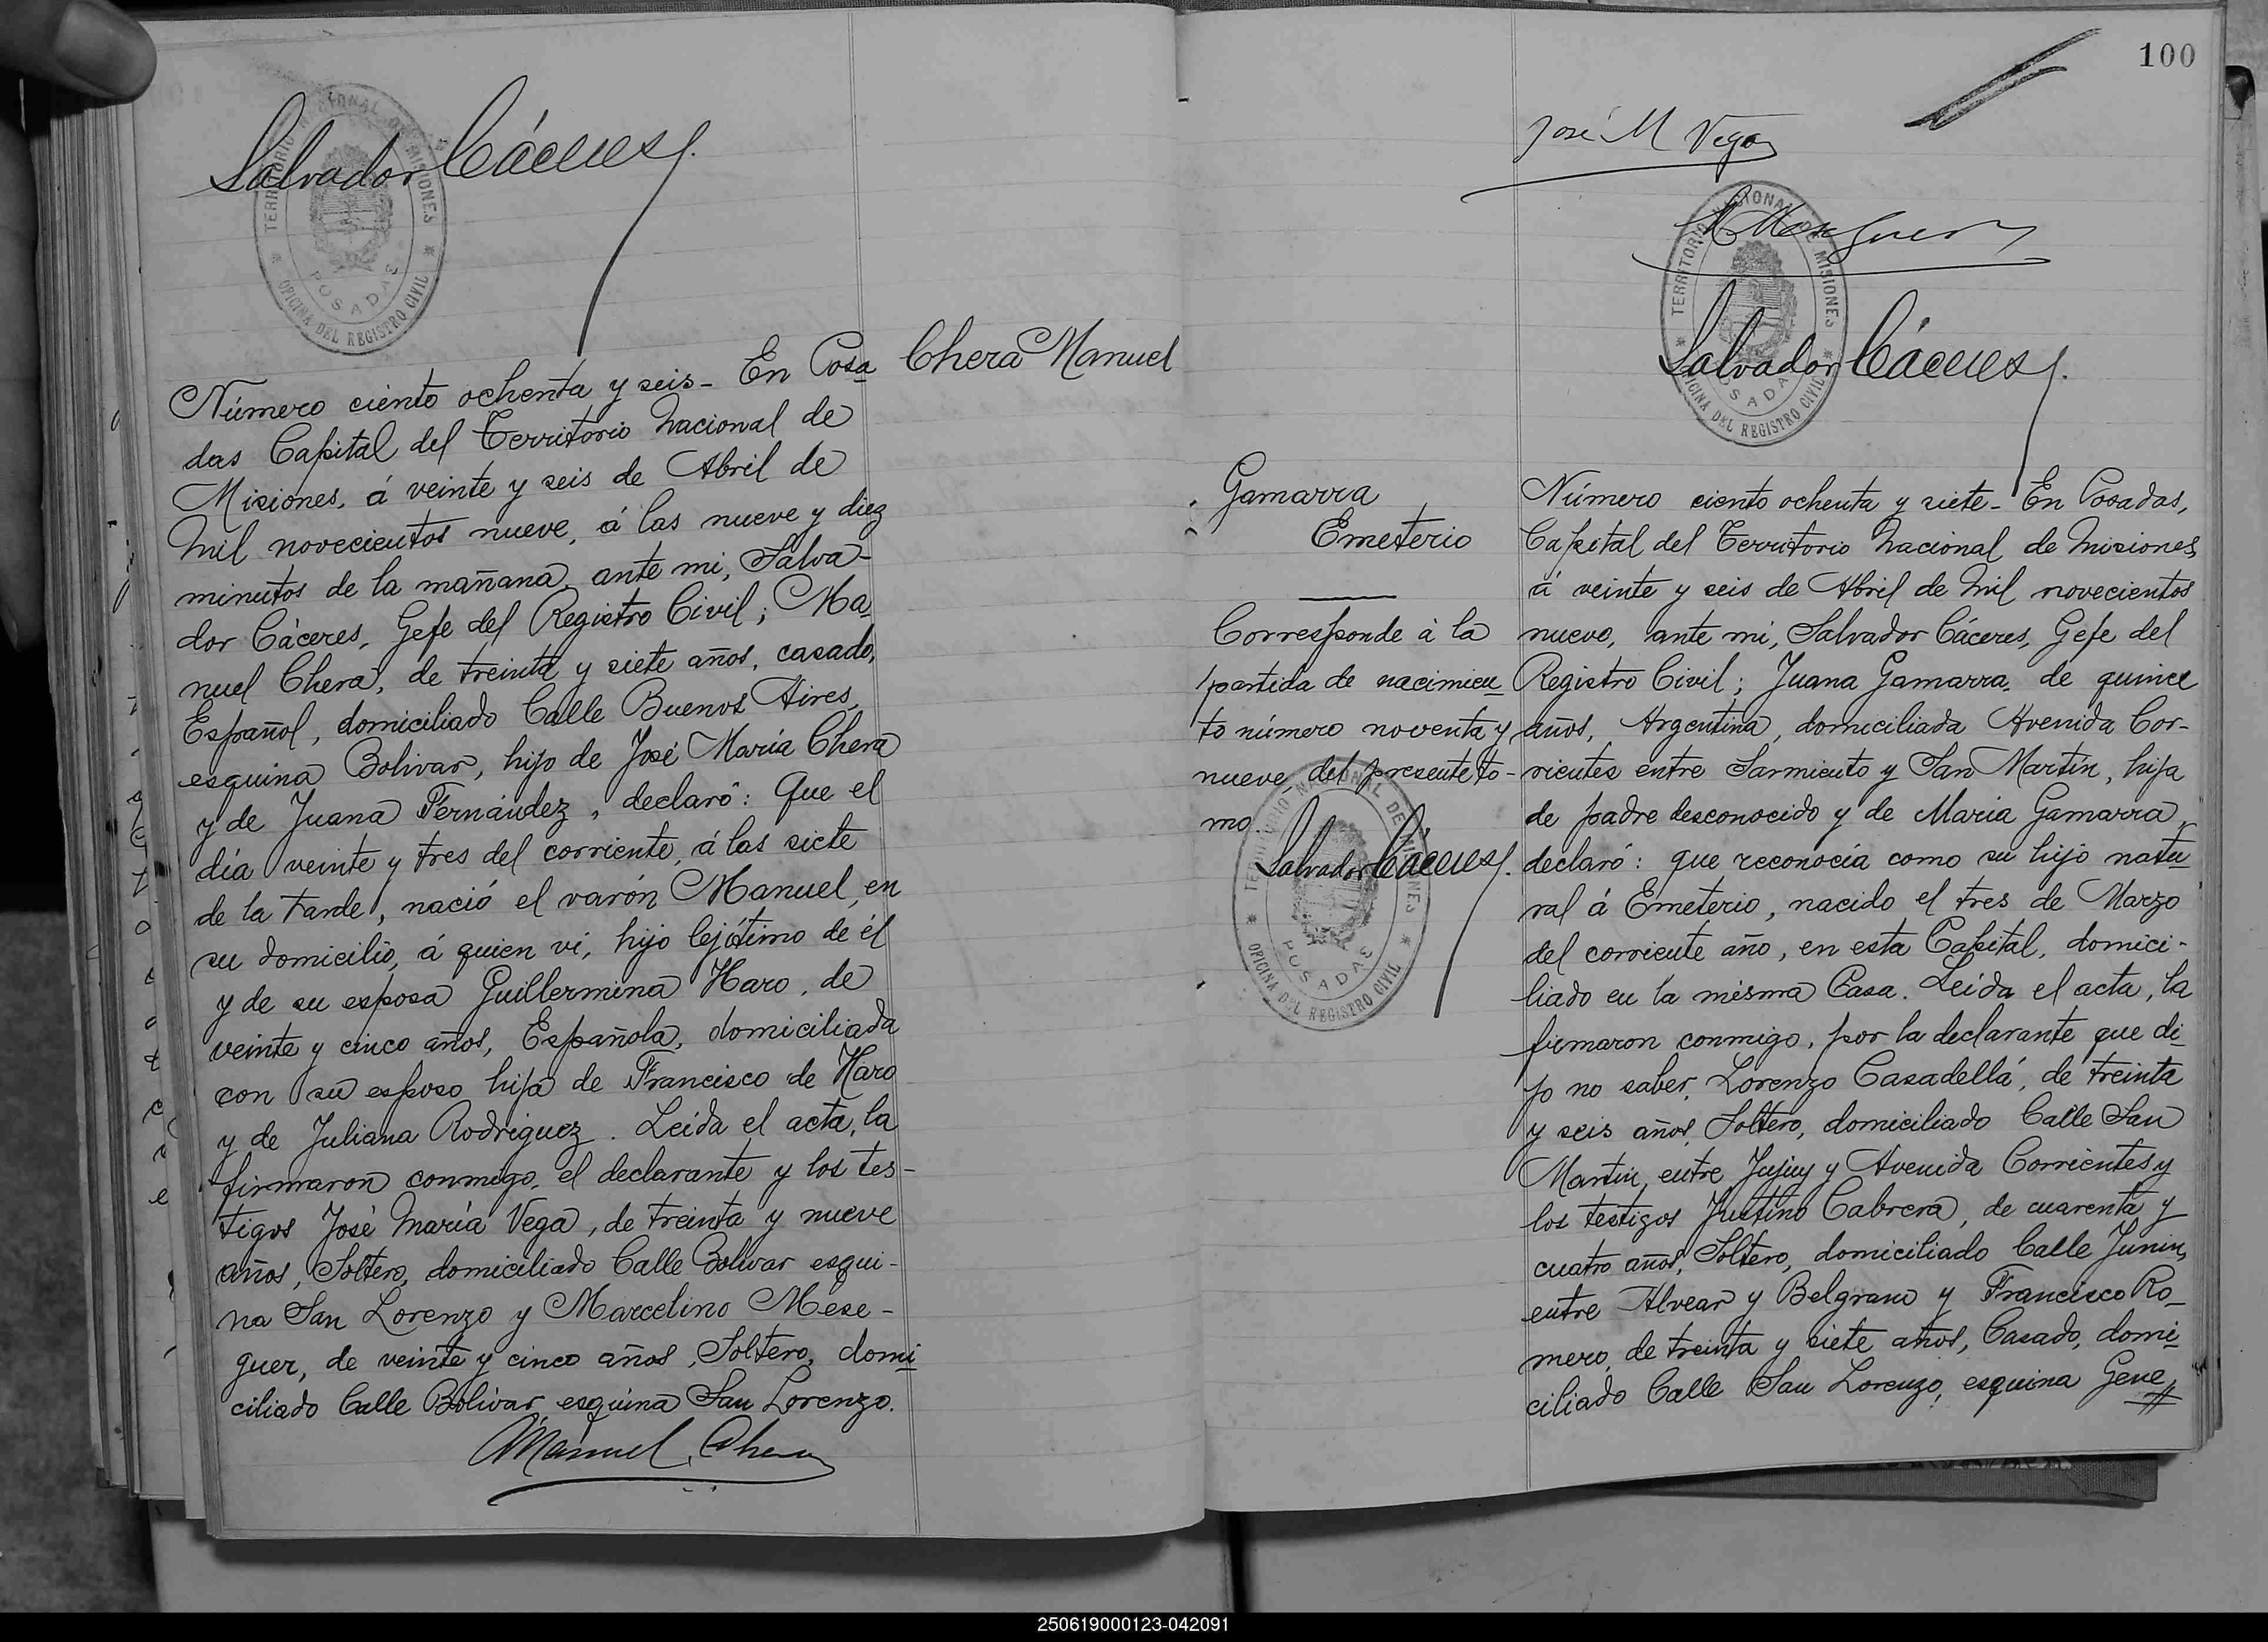 Salvador Cáceres
TERRITORIO NACIONAL DE MISIONES
POSADAS
OFICINA DEL REGISTRO CIVIL
Chera Manuel
Número ciento ochenta y seis - En Posa
das Capital del Territorio Nacional de
Misiones, á veinte y seis de Abril de
Mil novecientos nueve, á las nueve y diez
minutos de la mañana, ante mi, Salva-
dor Cáceres, Gefe del Registro Civil; Ma
nuel Chera, de treinta y siete años, casado,
Español, domiciliado Calle Buenos Aires,
esquina Bolivar, hijo de José María Chera
y de Juana Fernández, declaró: Que el
día veinte y tres del corriente, á las siete
de la tarde, nació el varón Manuel, en
su domicilio, á quien vi, hijo lejítimo de él
y de su esposa Guillermina Haro, de
veinte y cinco años, Española, domiciliada
con su esposo hija de Francisco de Haro
y de Juliana Rodriguez. Leida el acta, la
firmaron conmigo, el declarante y los tes-
tigos José María Vega, de treinta y nueve
años, Soltero, domiciliado Calle Bolivar esqui-
na San Lorenzo y Marcelino Mese-
guer, de veinte y cinco años, Soltero, domi
ciliado Calle Bolivar esquina San Lorenzo.
Manuel Chera
100
José M Vega
M Meseguer
TERRITORIO NACIONAL DE MISIONES
POSADAS
OFICINA DEL REGISTRO CIVIL
Salvador Cáceres
Gamarra
Emeterio
Corresponde á la
partida de nacimien
to número noventa y
nueve del presente to-
mo.
Salvador Cáceres
TERRITORIO NACIONAL DE MISIONES
POSADAS
OFICINA DEL REGISTRO CIVIL
Número ciento ochenta y siete - En Posadas,
Capital del Territorio Nacional de Misiones
á veinte y seis de Abril de Mil novecientos
nueve, ante mi, Salvador Cáceres, Gefe del
Registro Civil; Juana Gamarra, de quince
años, Argentina, domiciliada Avenida Cor-
rientes entre Sarmiento y San Martín, hija
de padre desconocido y de Maria Gamarra,
declaró: que reconocía como su hijo natu
ral á Emeterio, nacido el tres de Marzo
del corriente año, en esta Capital, domici-
liado en la misma Casa. Leida el acta, la
firmaron conmigo, por la declarante que di
jo no saber, Lorenzo Casadellá, de treinta
y seis años, Soltero, domiciliado Calle San
Martin, entre Jujuy y Avenida Corrientes y
los testigos Justino Cabrera, de cuarenta y
cuatro años, Soltero, domiciliado Calle Junin,
entre Alvear y Belgrano y Francisco Ro-
mero, de treinta y siete años, Casado, domi
ciliado Calle San Lorenzo, esquina Gene
250619000123-042091